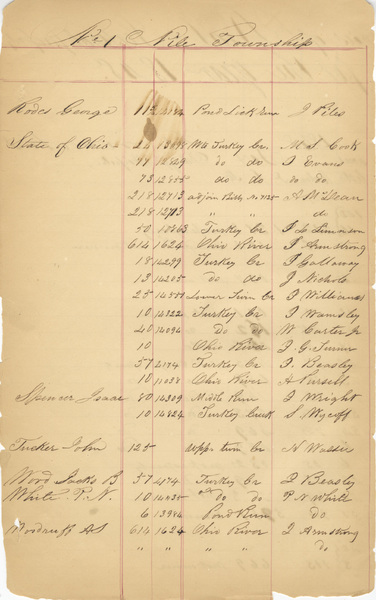 No 1 Nile Township
Rodes George 115 Pond Lick Run J Piles
State of Ohio 24 13098 Wts Turkey Cr. M S Cook
77 12829 do do I Evans
73 12855 do do do do
218 12713 adjoin
218 12713 " " do
50 Turkey Cr.
614 1624 Ohio River J Armstrong
18 14299 Turkey Cr I Gallaway
13 14205 do do J Nichols
25 Lower Twin Cr I Williams
10 14322 Turkey Cr J Wamsley
40 14094 Do do W Carter Jr
10 Ohio River J G Turner
57 4174 Turkey Cr J. Beasley
10 11038 Ohio River A Pursell
Spencer Isaac 40 14309 Middle Run J Wright
10 14424 Turkey Creek S Wycoff
Tucker John 125 upper twin Cr N
Wood Jacks B 57 4174 Turkey Cr J Beasley
White P. N. 10 14035 do do P N White
6 13986 Pond Run do
Woodruff A S 614 1624 Ohio River J Armstrong
" " " " do